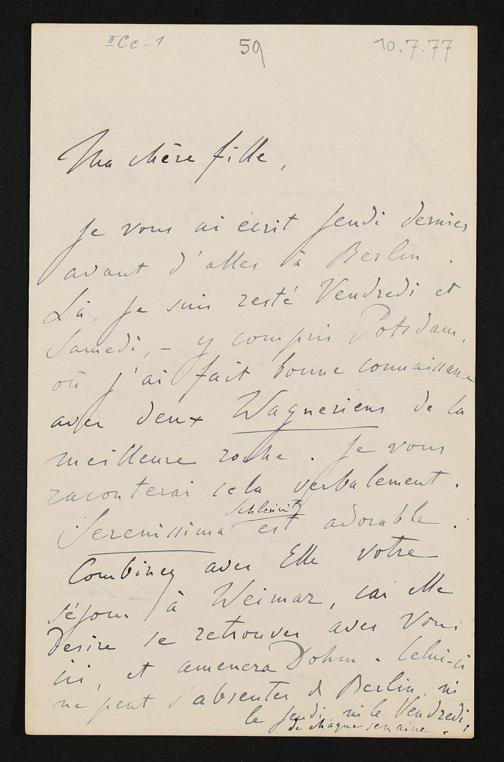 IICc-1
59
10.7.77
Ma chère fille,
Je vous ai écrit Jeudi dernier
avant d'aller à Berlin.
Là, je suis resté Vendredi et
Samedi, – y compris Potsdam,
où j'ai fait bonne connaissance
avec deux Wagneriens de la
meilleure roche. Je vous
raconterai cela verbalement.
Schleinitz
Serenissima est adorable.
Combinez avec Elle votre
séjour à Weimar, car elle
désire se retrouver avec Vous
ici, et amenera Dohm. Celui-ci
ne peut s'absenter de Berlin, ni
le Jeudi, ni le Vendredi
de chaque semaine.